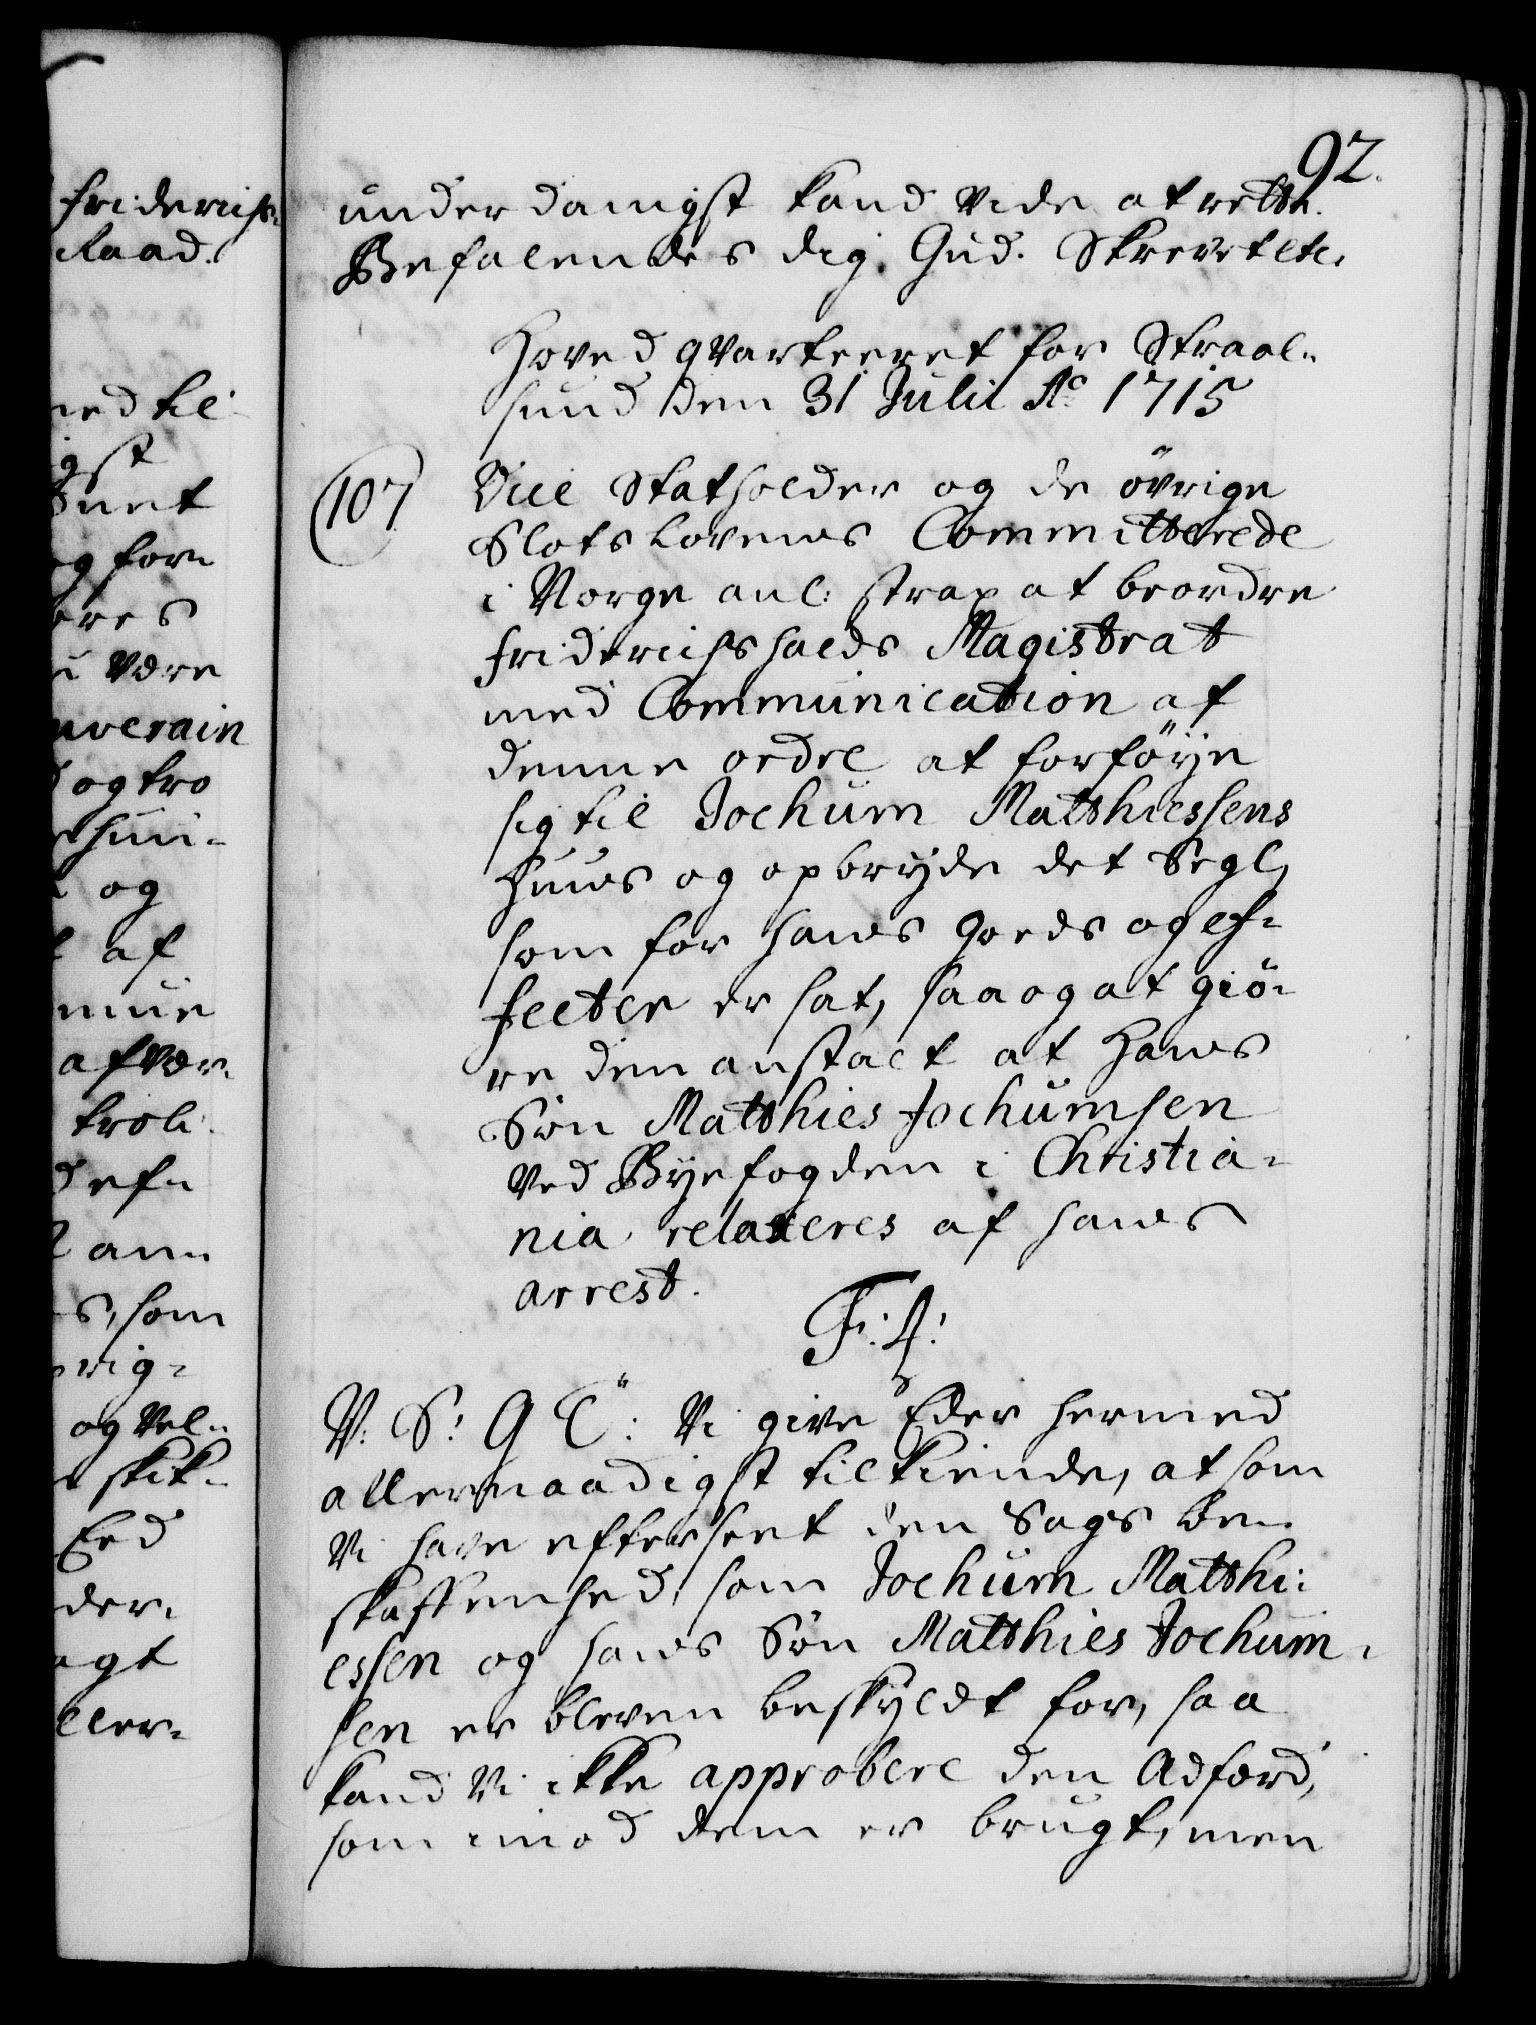 Friderichs-
Raad.
ned til
gst
og for-
eres
i være
uverain
og tro
og
af
afvær-
trol.
som
og vel-
skik-
Eed
der-
agt
ller-
92.
underdanigst kand vide at rette.
Befalendes dig Gud. Skrevet etc.
Hoved qvarteeret for Straal-
sund den 31 Julii Ao 1715
107 Vice Statholder og de övrige
Slots Lovens Committerede
i Norge anl: strax at beordre
Friderichshalds Magistrat
med Communication af
denne ordre at forföye
sig til Jochum Matthiessens
Huus og opbryde det Segl,
som for hans goeds og ef-
fecter er sat, saa og at giö-
re den anstalt at Hans
Sön Matthies Jochumsen
ved Byefogden i Christia-
nia relaxeres af hans
arrest.
F: 4:
V. S: G T: Vi give Eder hermed
allernaadigst tilkiende, at som
Vi have efterseet den Sags be-
skaffenhed, som Jochum Matthi-
essen og hans Sön Matthies Jochum-
sen er bleven beskyldt for, saa
kand Vi ikke approbere den Adfærd,
som imod dem er brugt, men